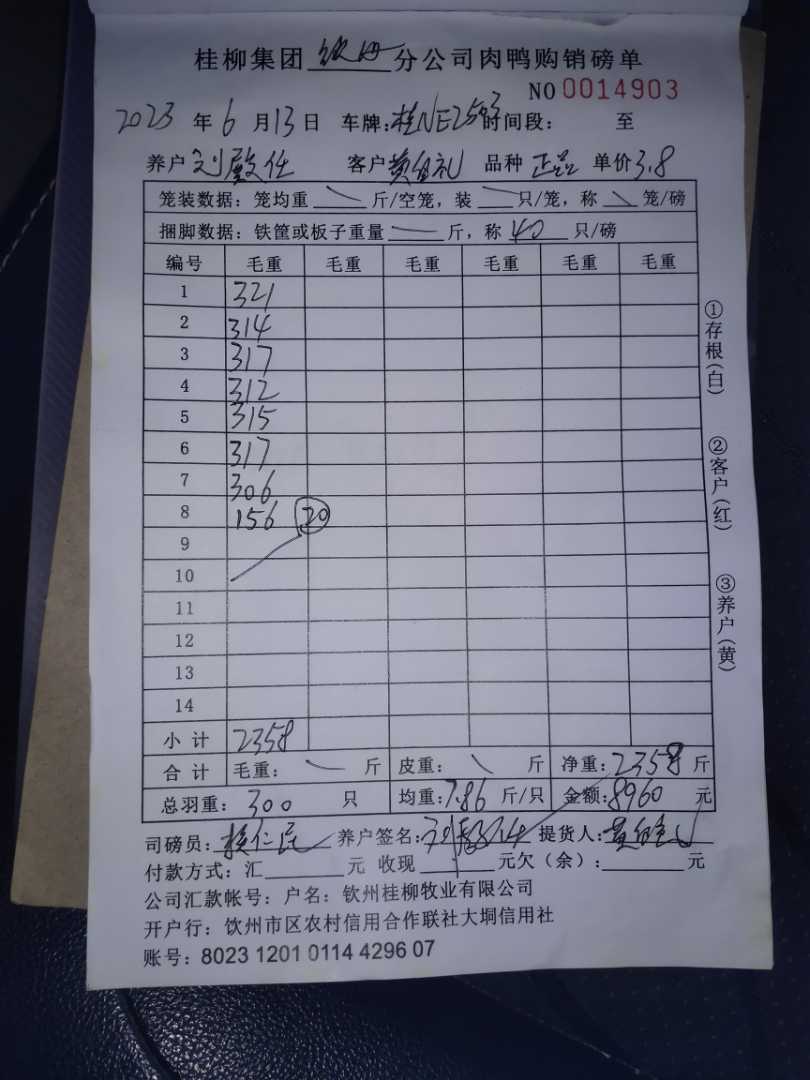 桂柳集团 分公司肉鸭购销磅单
NO 0014903
2023 年 6 月 13 日 车牌:桂NE2593 时间段: 至
养户 客户 品种 正品 单价 3.8
笼装数据: 笼均重 斤/空笼, 装 只/笼, 称 笼/磅
捆脚数据: 铁筐或板子重量 斤, 称 40 只/磅
编号 毛重 毛重 毛重 毛重 毛重 毛重
1 321
2 314
3 317
4 312
5 315
6 317
7 306
8 156 20
9
10
11
12
13
14
小计 2358
合计 毛重: 斤 皮重: 斤 净重: 2358 斤
总羽重: 300 只 均重: 7.86 斤/只 金额: 8960 元
司磅员: 养户签名: 提货人:
付款方式: 汇 元 收现 元欠(余): 元
公司汇款帐号: 户名: 钦州桂柳牧业有限公司
开户行: 钦州市区农村信用合作联社大垌信用社
账号: 8023 1201 0114 4296 07
①存根(白)
②客户(红)
③养户(黄)